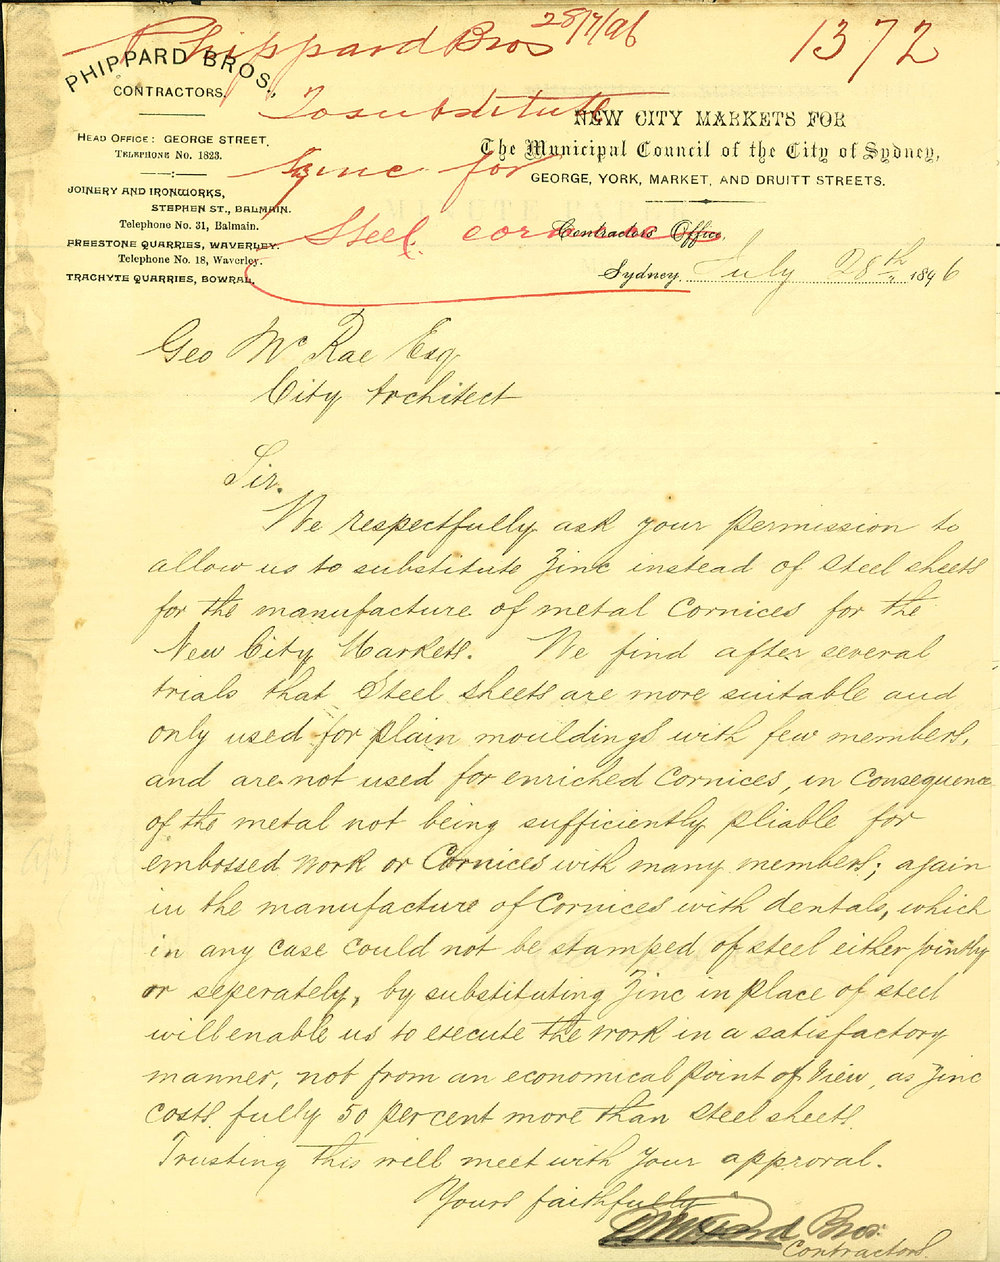 Phippard Bros 28/7/96
1372
To substitute
Zinc for
Steel cornices
PHIPPARD BROS.,
CONTRACTORS.
HEAD OFFICE: GEORGE STREET.
TELEPHONE NO. 1823.
JOINERY AND IRONWORKS,
STEPHEN ST., BALMAIN.
Telephone No. 31, Balmain.
FREESTONE QUARRIES, WAVERLEY.
Telephone No. 18, Waverley.
TRACHYTE QUARRIES, BOWRAL.
NEW CITY MARKETS FOR
The Municipal Council of the City of Sydney,
GEORGE, YORK, MARKET, AND DRUITT STREETS.
MINUTE PAPER
Contractors Office,
Sydney, July 28th 1896
Geo McRae Esq
City Architect
Sir.
We respectfully ask your permission to
allow us to substitute Zinc instead of steel sheets
for the manufacture of metal Cornices for the
New City Markets. We find after several
trials that Steel sheets are more suitable and
only used for plain mouldings with few members,
and are not used for enriched Cornices, in Consequence
of the metal not being sufficiently pliable for
embossed work or Cornices with many members; again
in the manufacture of Cornices with dentals, which
in any case could not be stamped of steel either jointly
or seperately, by substituting Zinc in place of steel
will enable us to execute the work in a satisfactory
manner, not from an economical point of view, as Zinc
costs fully 50 per cent more than steel sheets.
Trusting this will meet with your approval.
Yours faithfully
Phippard Bros.
Contractors.